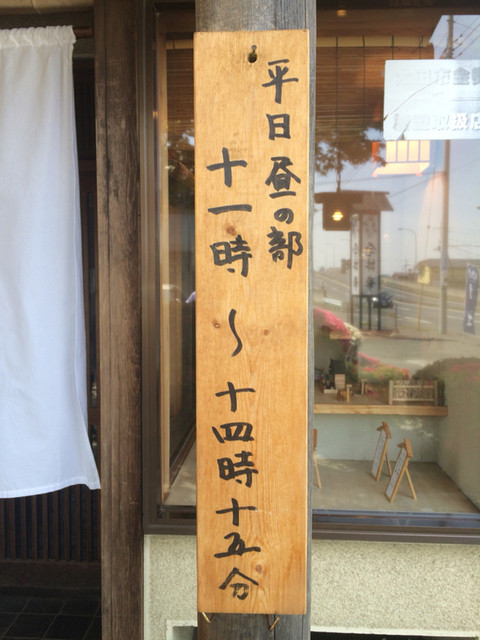 平日昼の部
十一時〜十四時十五分
取扱店